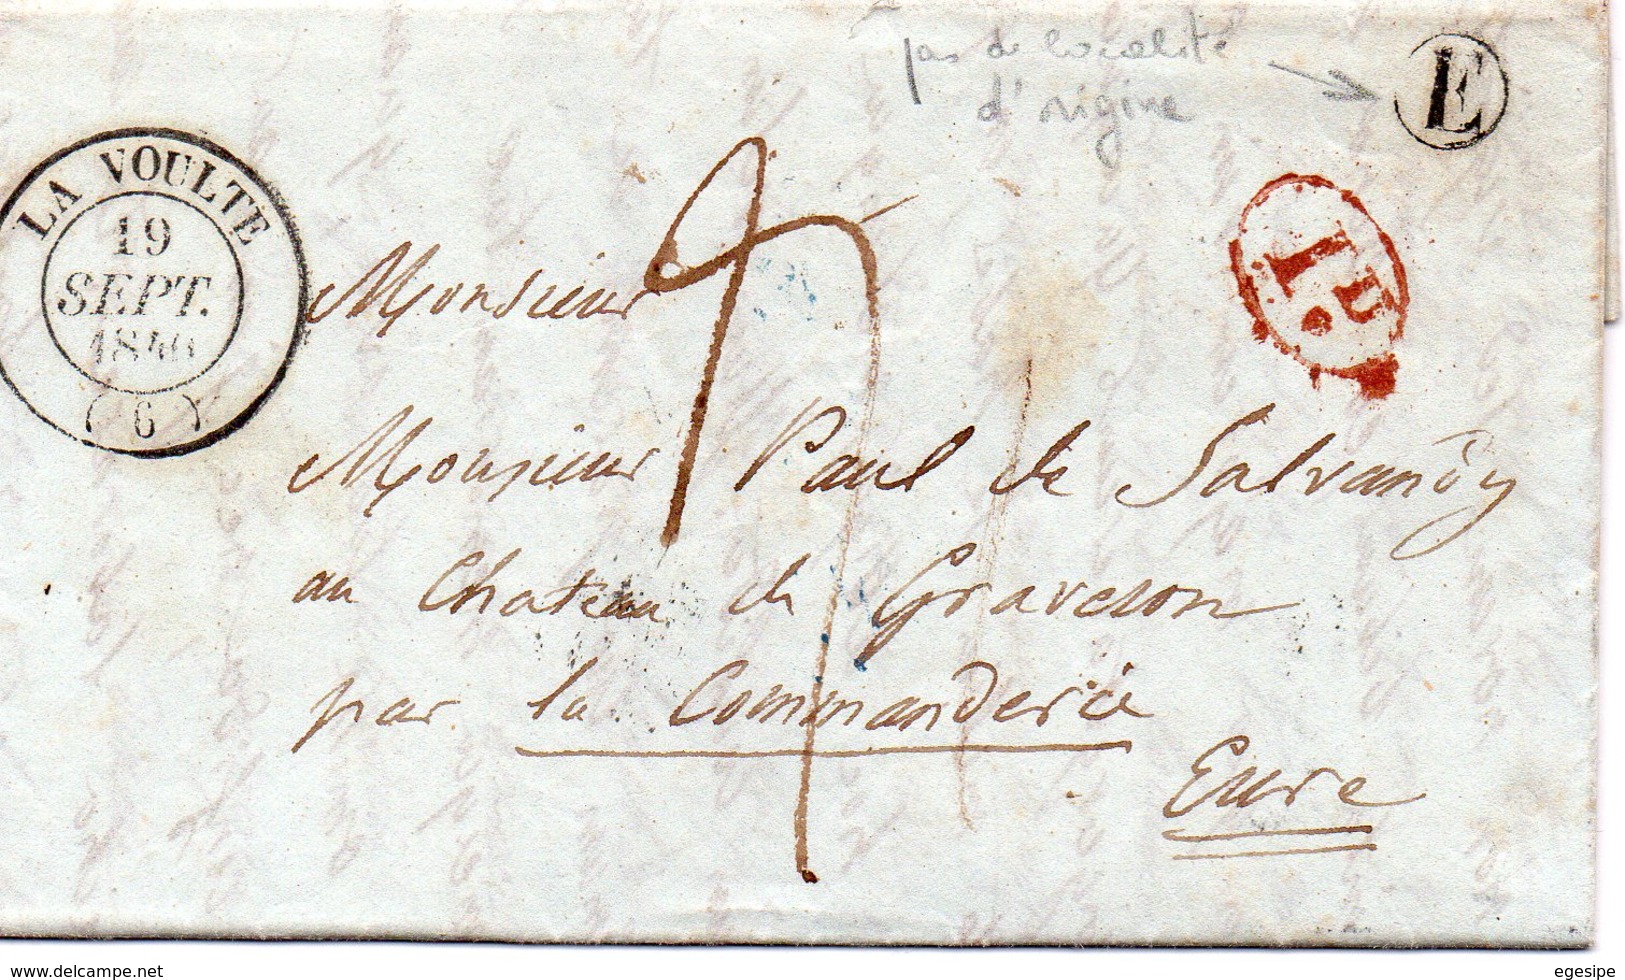 pas de localité
d'origine
E
LA VOULTE
19
SEPT.
1846
( 6 )
I.D.
Monsieur
Monsieur Paul de Salvandy
au Chateau de Graveson
par la Commanderie
Eure
www.delcampe.net
egesipe